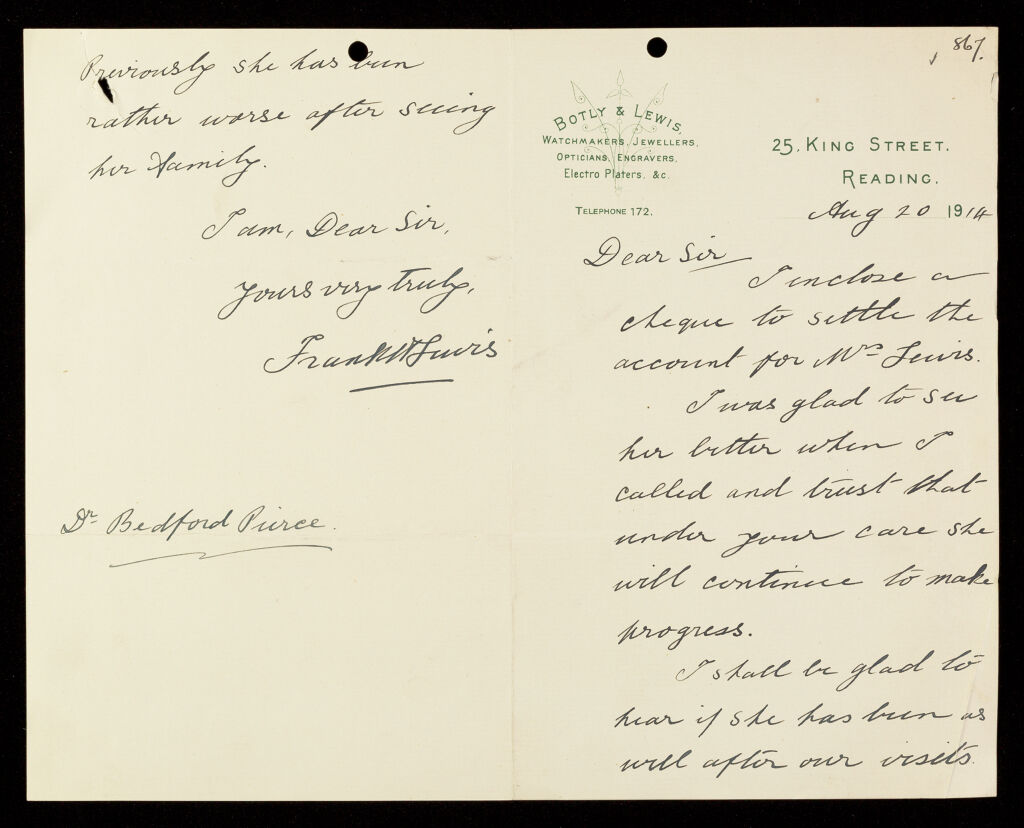 867.
BOTLY & LEWIS,
WATCHMAKERS, JEWELLERS,
OPTICIANS, ENGRAVERS,
Electro Platers. &c.
TELEPHONE 172.
25, KING STREET.
READING.
Aug 20 1914
Dear Sir
I inclose a
cheque to settle the
account for Mrs Lewis.
I was glad to see
her better when I
called and trust that
under your care she
will continue to make
progress.
I shall be glad to
hear if she has been as
well after our visits.
Previously she has been
rather worse after seeing
her family.
I am, Dear Sir,
Yours very truly,
Frank W Lewis
Dr Bedford Pierce.